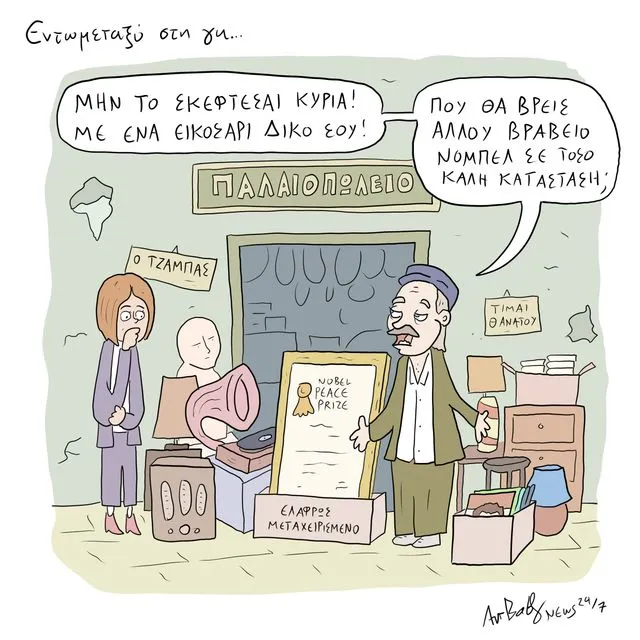 Εντωμεταξύ στη γη...
ΜΗΝ ΤΟ ΣΚΕΦΤΕΣΑΙ ΚΥΡΙΑ!
ΜΕ ΕΝΑ ΕΙΚΟΣΑΡΙ ΔΙΚΟ ΣΟΥ!
ΠΟΥ ΘΑ ΒΡΕΙΣ
ΑΛΛΟΥ ΒΡΑΒΕΙΟ
ΝΟΜΠΕΛ ΣΕ ΤΟΣΟ
ΚΑΛΗ ΚΑΤΑΣΤΑΣΗ;
ΠΑΛΑΙΟΠΩΛΕΙΟ
Ο ΤΖΑΜΠΑΣ
ΤΙΜΑΙ
ΘΑΝΑΤΟΥ
NOBEL
PEACE
PRIZE
ΕΛΑΦΡΩΣ
ΜΕΤΑΧΕΙΡΙΣΜΕΝΟ
NEWS 24/7